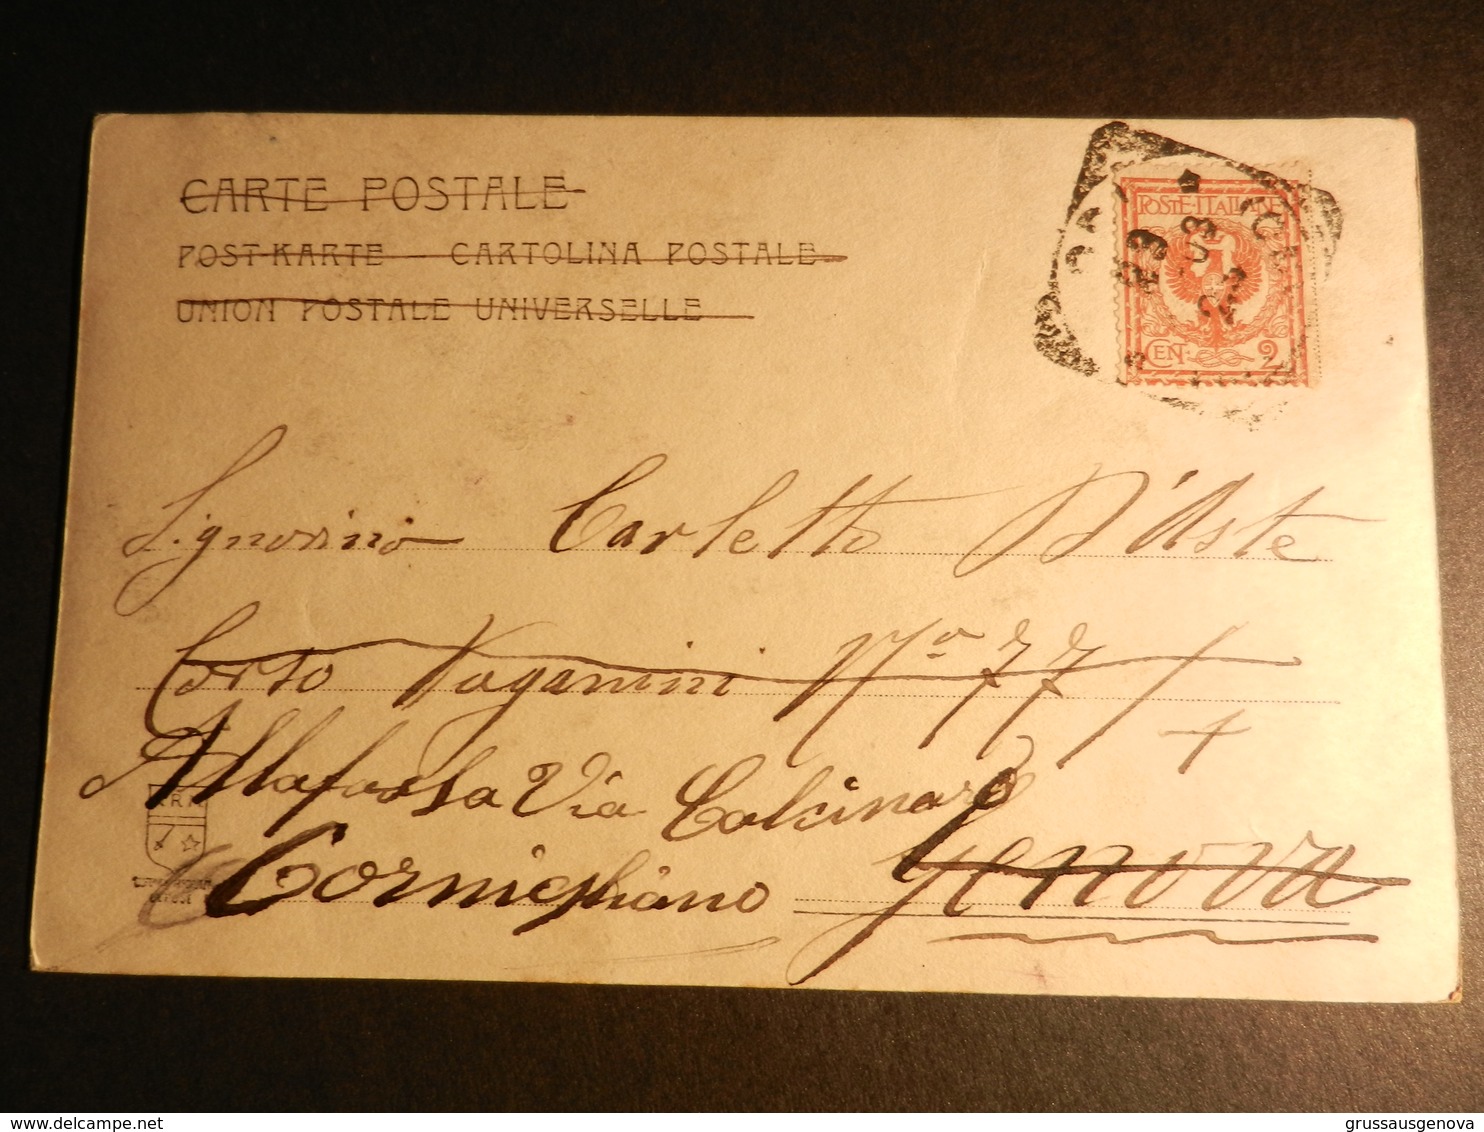 CARTE POSTALE
POST-KARTE - CARTOLINA POSTALE
UNION POSTALE UNIVERSELLE
POSTE·ITALIANE
CEN: 2
23
03
Signorino Carletto D'Aste
Corso Paganini No 77/
Allafossa Via Calcinara
Cornigliano Genova
delcampe.net
grussausgenova